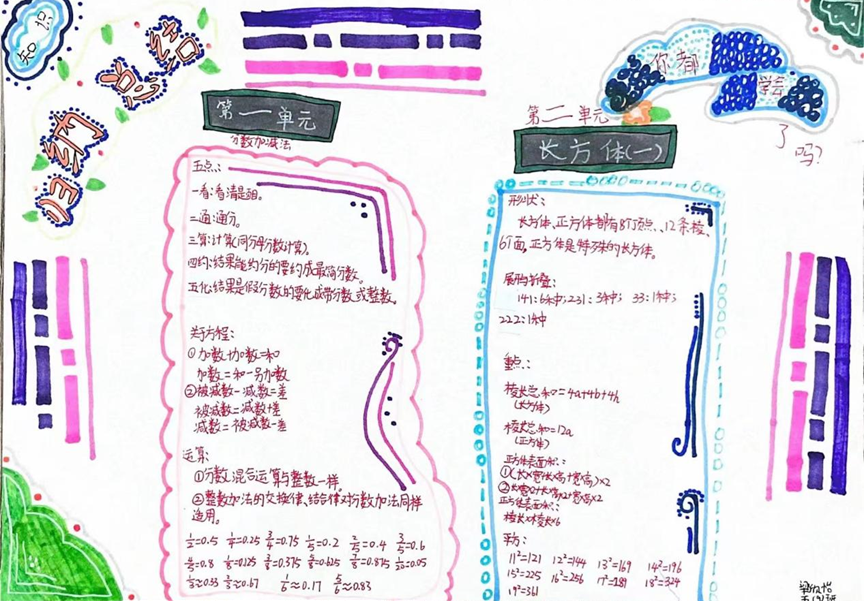 知识
归纳总结
第一单元
分数加减法
五点:
一看:看清是
二通:通分。
三算:计算(同分母分数计算)。
四约:结果能约分的要约成最简分数。
五化:结果是假分数的要化成带分数或整数。
关于方程:
①加数+加数=和
加数=和-另一加数
②被减数-减数=差
被减数=减数+差
减数=被减数-差
运算:
①分数混合运算与整数一样。
②整数加法的交换律、结合律对分数加法同样
适用。
1/2=0.5 1/4=0.25 3/4=0.75 1/5=0.2 2/5=0.4 3/5=0.6
4/5=0.8 1/8=0.125 3/8=0.375 5/8=0.625 7/8=0.875 1/20=0.05
1/3≈0.33 2/3≈0.67 1/6≈0.17 5/6≈0.83
你都
学会
了
吗?
第二单元
长方体(一)
形状:
长方体、正方体都有8个顶点、12条棱、
6个面,正方体是特殊的长方体。
展开与折叠:
141:6种;231:3种; 33:1种;
222:1种
重点:
棱长总和=4a+4b+4h
(长方体)
棱长总和=12a
(正方体)
①(长×宽+长×高+宽×高)×2
②长×宽×2+长×高×2+宽×高×2
正方体表面积:
棱长×棱长×6
平方:
11²=121 12²=144 13²=169 14²=196
15²=225 16²=256 17²=289 18²=324
19²=361